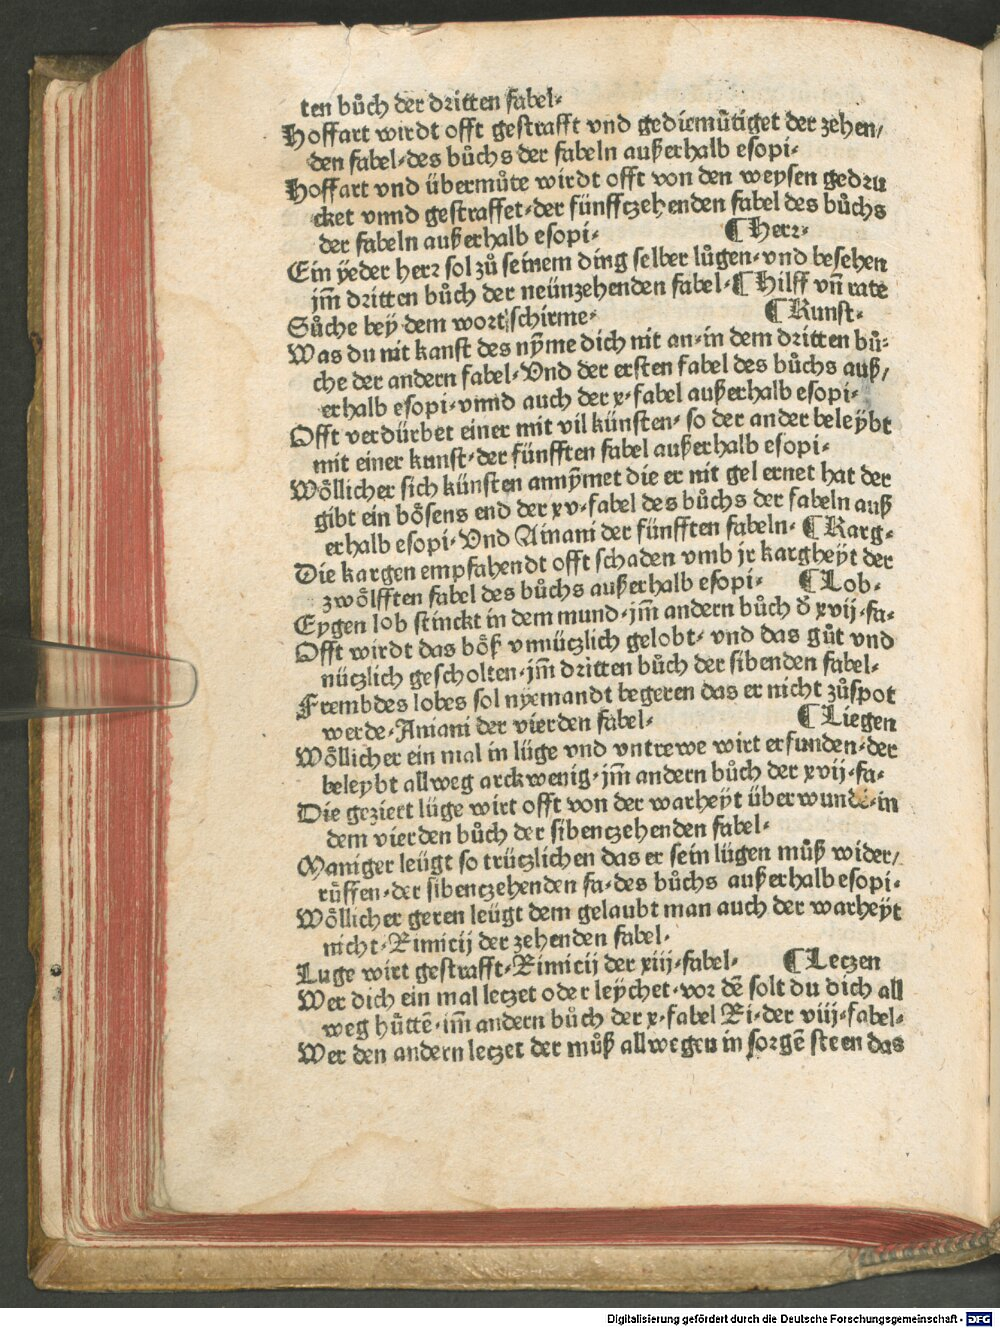 ten bůch der dritten fabel⸗
Hoffart wirdt offt gestrafft vnd gediemůtiget der zehen/
den fabel⸗des bůchs der fabeln außerhalb esopi⸗
Hoffart vnd übermůte wirdt offt von den weysen gedru
cket vnnd gestraffet⸗der fünffczehenden fabel des bůchs
der fabeln außerhalb esopi⸗ ¶ Herr⸗
Ein ÿeder herr sol zů seinem ding selber lůgen⸗vnd besehen
jm̄ dritten bůch der neünzehenden fabel⸗¶ Hilff vn̄ rate
Sůche beÿ dem wort schirme⸗ ¶ Kunst⸗
Was du nit kanst des nÿme dich nit an⸗in dem dritten bů⸗
che der andern fabel⸗Vnd der ersten fabel des bůchs auß/
erhalb esopi⸗vnnd auch der x⸗fabel außerhalb esopi⸗
Offt verdürbet einer mit vil künsten⸗ so der ander beleÿbt
mit einer kunst⸗der fünfften fabel außerhalb esopi⸗
Woͤllicher sich künsten annÿmet die er nit gel ernet hat der
gibt ein boͤsens end der xv⸗fabel des bůchs der fabeln auß
erhalb esopi⸗Vnd Auiani der fünfften fabeln⸗ ¶ Karg⸗
Die kargen empfahendt offt schaden vmb jr kargheÿt der
zwoͤlfften fabel des bůchs außerhalb esopi⸗ ¶ Lob⸗
Eygen lob stinckt in dem mund⸗jm̄ andern bůch d̕ xvij⸗fa⸗
Offt wirdt das boͤß vnnüczlich gelobt⸗ vnd das gůt vnd
nüczlich gescholten⸗jm̄ dritten bůch der sibenden fabel⸗
Frembdes lobes sol nyemandt begeren das er nicht zůspot
werde⸗Aniani der vierden fabel⸗ ¶ Liegen
Woͤllicher ein mal in lüge vnd vntrewe wirt erfunden⸗der
beleybt allweg arckwenig⸗jm̄ andern bůch der xvij⸗fa⸗
Die geziert lüge wirt offt von der warheÿt überwundē⸗in
dem vierden bůch der sibenczehenden fabel⸗
Maniger leügt so trüczlichen das er sein lügen můß wider/
růffen⸗der sibenczehenden fa⸗des bůchs außerhalb esopi⸗
Woͤllicher geren leügt dem gelaubt man auch der warheÿt
nicht⸗Rimicij der zehenden fabel⸗
Luge wirt gestrafft⸗Rimicij der xiij⸗fabel⸗ ¶ Leczen
Wer dich ein mal leczet oder leÿchet⸗vor dē solt du dich all
weg hůttē⸗im̄ andern bůch der x⸗fabel Ri⸗der viij⸗fabel⸗
Wer den andern leczet der můß allwegen in sorgē steen das
Digitalisierung gefördert durch die Deutsche Forschungsgemeinschaft - DFG